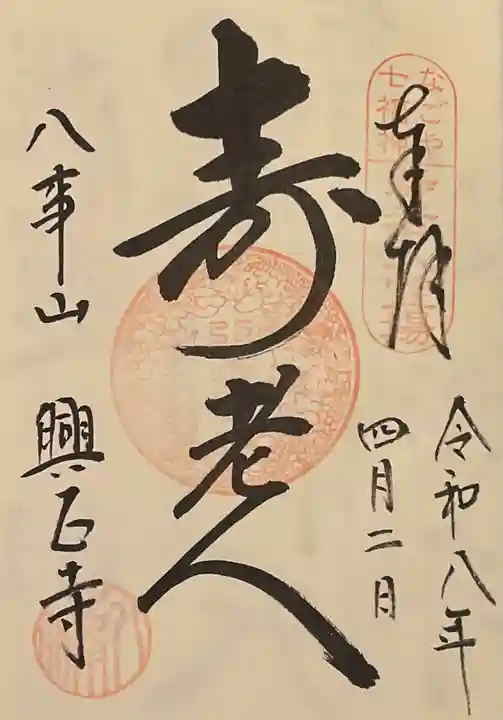 奉拝
令和八年
四月二日
寿老人
八事山 興正寺
なごや
七福神